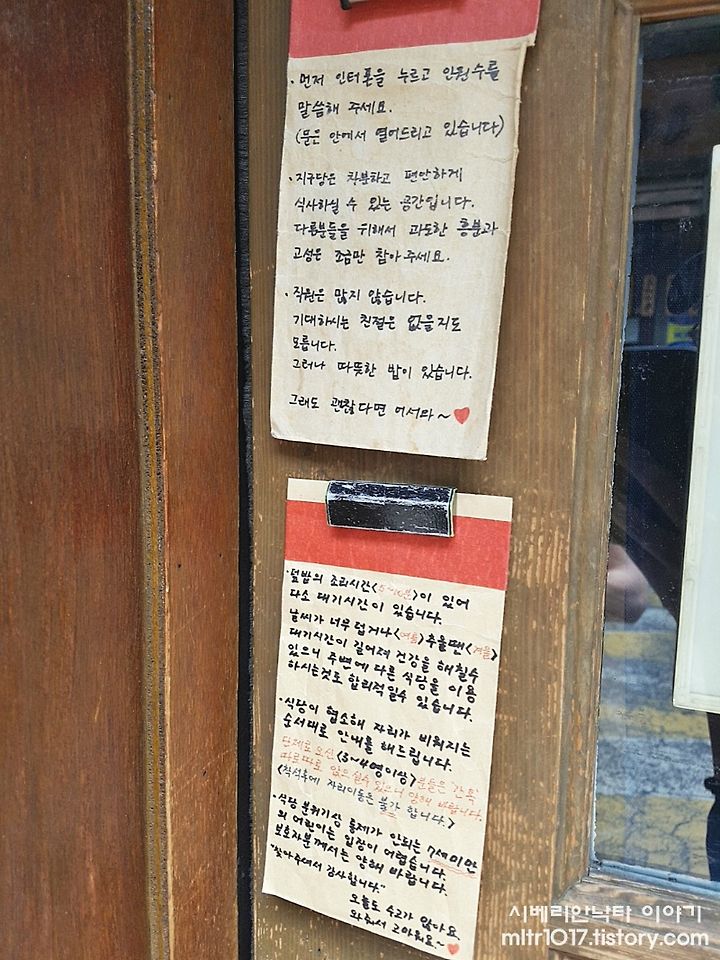 · 먼저 인터폰을 누르고 인원수를
말씀해 주세요.
(문은 안에서 열어드리고 있습니다)
· 지구당은 차분하고 편안하게
식사하실 수 있는 공간입니다.
다른분들을 위해서 과도한 흥분과
고성은 조금만 참아주세요.
· 직원은 많지 않습니다.
기대하시는 친절은 없을지도
모릅니다.
그러나 따뜻한 밥이 있습니다.
그래도 괜찮다면 어서와~♥
· 덮밥의 조리시간<5~10분>이 있어
다소 대기시간이 있습니다.
날씨가 너무 덥거나<여름>추울땐<겨울>
대기시간이 길어져 건강을 해칠수
있으니 주변에 다른 식당을 이용
하시는것도 합리적일수 있습니다.
· 식당이 협소해 자리가 비워지는
순서대로 안내를 해드립니다.
단체로 오신<3~4명이상>분들은 간혹
따로따로 앉으실수 있으니 양해 바랍니다.
<착석후에 자리이동은 불가 합니다.>
· 식당 분위기상 통제가 안되는 7세미만
의 어린이는 입장이 어렵습니다.
보호자분께서는 양해 바랍니다.
"찾아주셔서 감사합니다."
오늘도 수고가 많아요.
와줘서 고마워요~♥
시베리안낙타 이야기
mltr1017.tistory.com